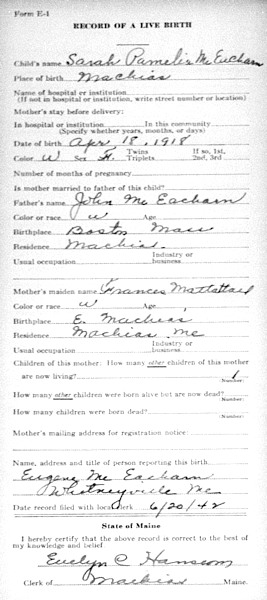 Form E-1
RECORD OF A LIVE BIRTH
Child's name Sarah Pamelia Mc Eacharn
Place of birth Machias
Name of hospital or institution
(If not in hospital or institution, write street number or location)
Mother's stay before delivery:
In hospital or institution In this community
(Specify whether years, months, or days)
Date of birth Apr. 18, 1918
Color W Sex F. Twins Triplets If so, 1st, 2nd, 3rd
Number of months of pregnancy
Is mother married to father of this child?
Father's name John Mc Eacharn
Color or race W Age
Birthplace Boston Mass
Residence Machias.
Usual occupation Industry or business
Mother's maiden name Frances
Color or race W Age
Birthplace E. Machias
Residence Machias Me
Usual occupation Industry or business
Children of this mother: How many other children of this mother
are now living? 1
(Number)
How many other children were born alive but are now dead?
(Number)
How many children were born dead?
(Number)
Mother's mailing address for registration notice:
Name, address and title of person reporting this birth
Eugene Mc Eacharn
Whitneyville Me
Date record filed with local clerk 6/20/42
State of Maine
I hereby certify that the above record is correct to the best of
my knowledge and belief
Evelyn C Hanscom
Clerk of Machias Maine.